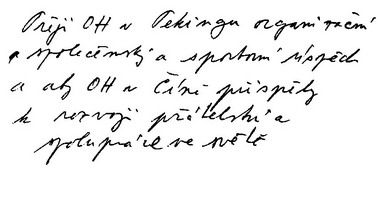 Přeji OH v Pekingu organizační
a společenský a sportovní úspěch
a aby OH v Číně přispěly
k rozvoji přátelství a
spolupráce ve světě